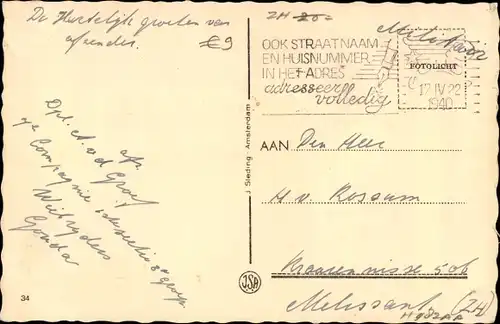 De Hartelijk groeten van
afzender.
€9
ZH 20=
Melissant
OOK STRAATNAAM
EN HUISNUMMER
IN HET ADRES
adresseer
volledig
FOTOLICHT
12 IV 22
1940
afz.
Dpl. A. v d Graaf
Compagnie
Wielrijders
Gouda
J Sleding - Amsterdam
AAN Den Heer
H v. Rossum
Kraaiennisse 50b
Melissant (ZH)
JSA
34